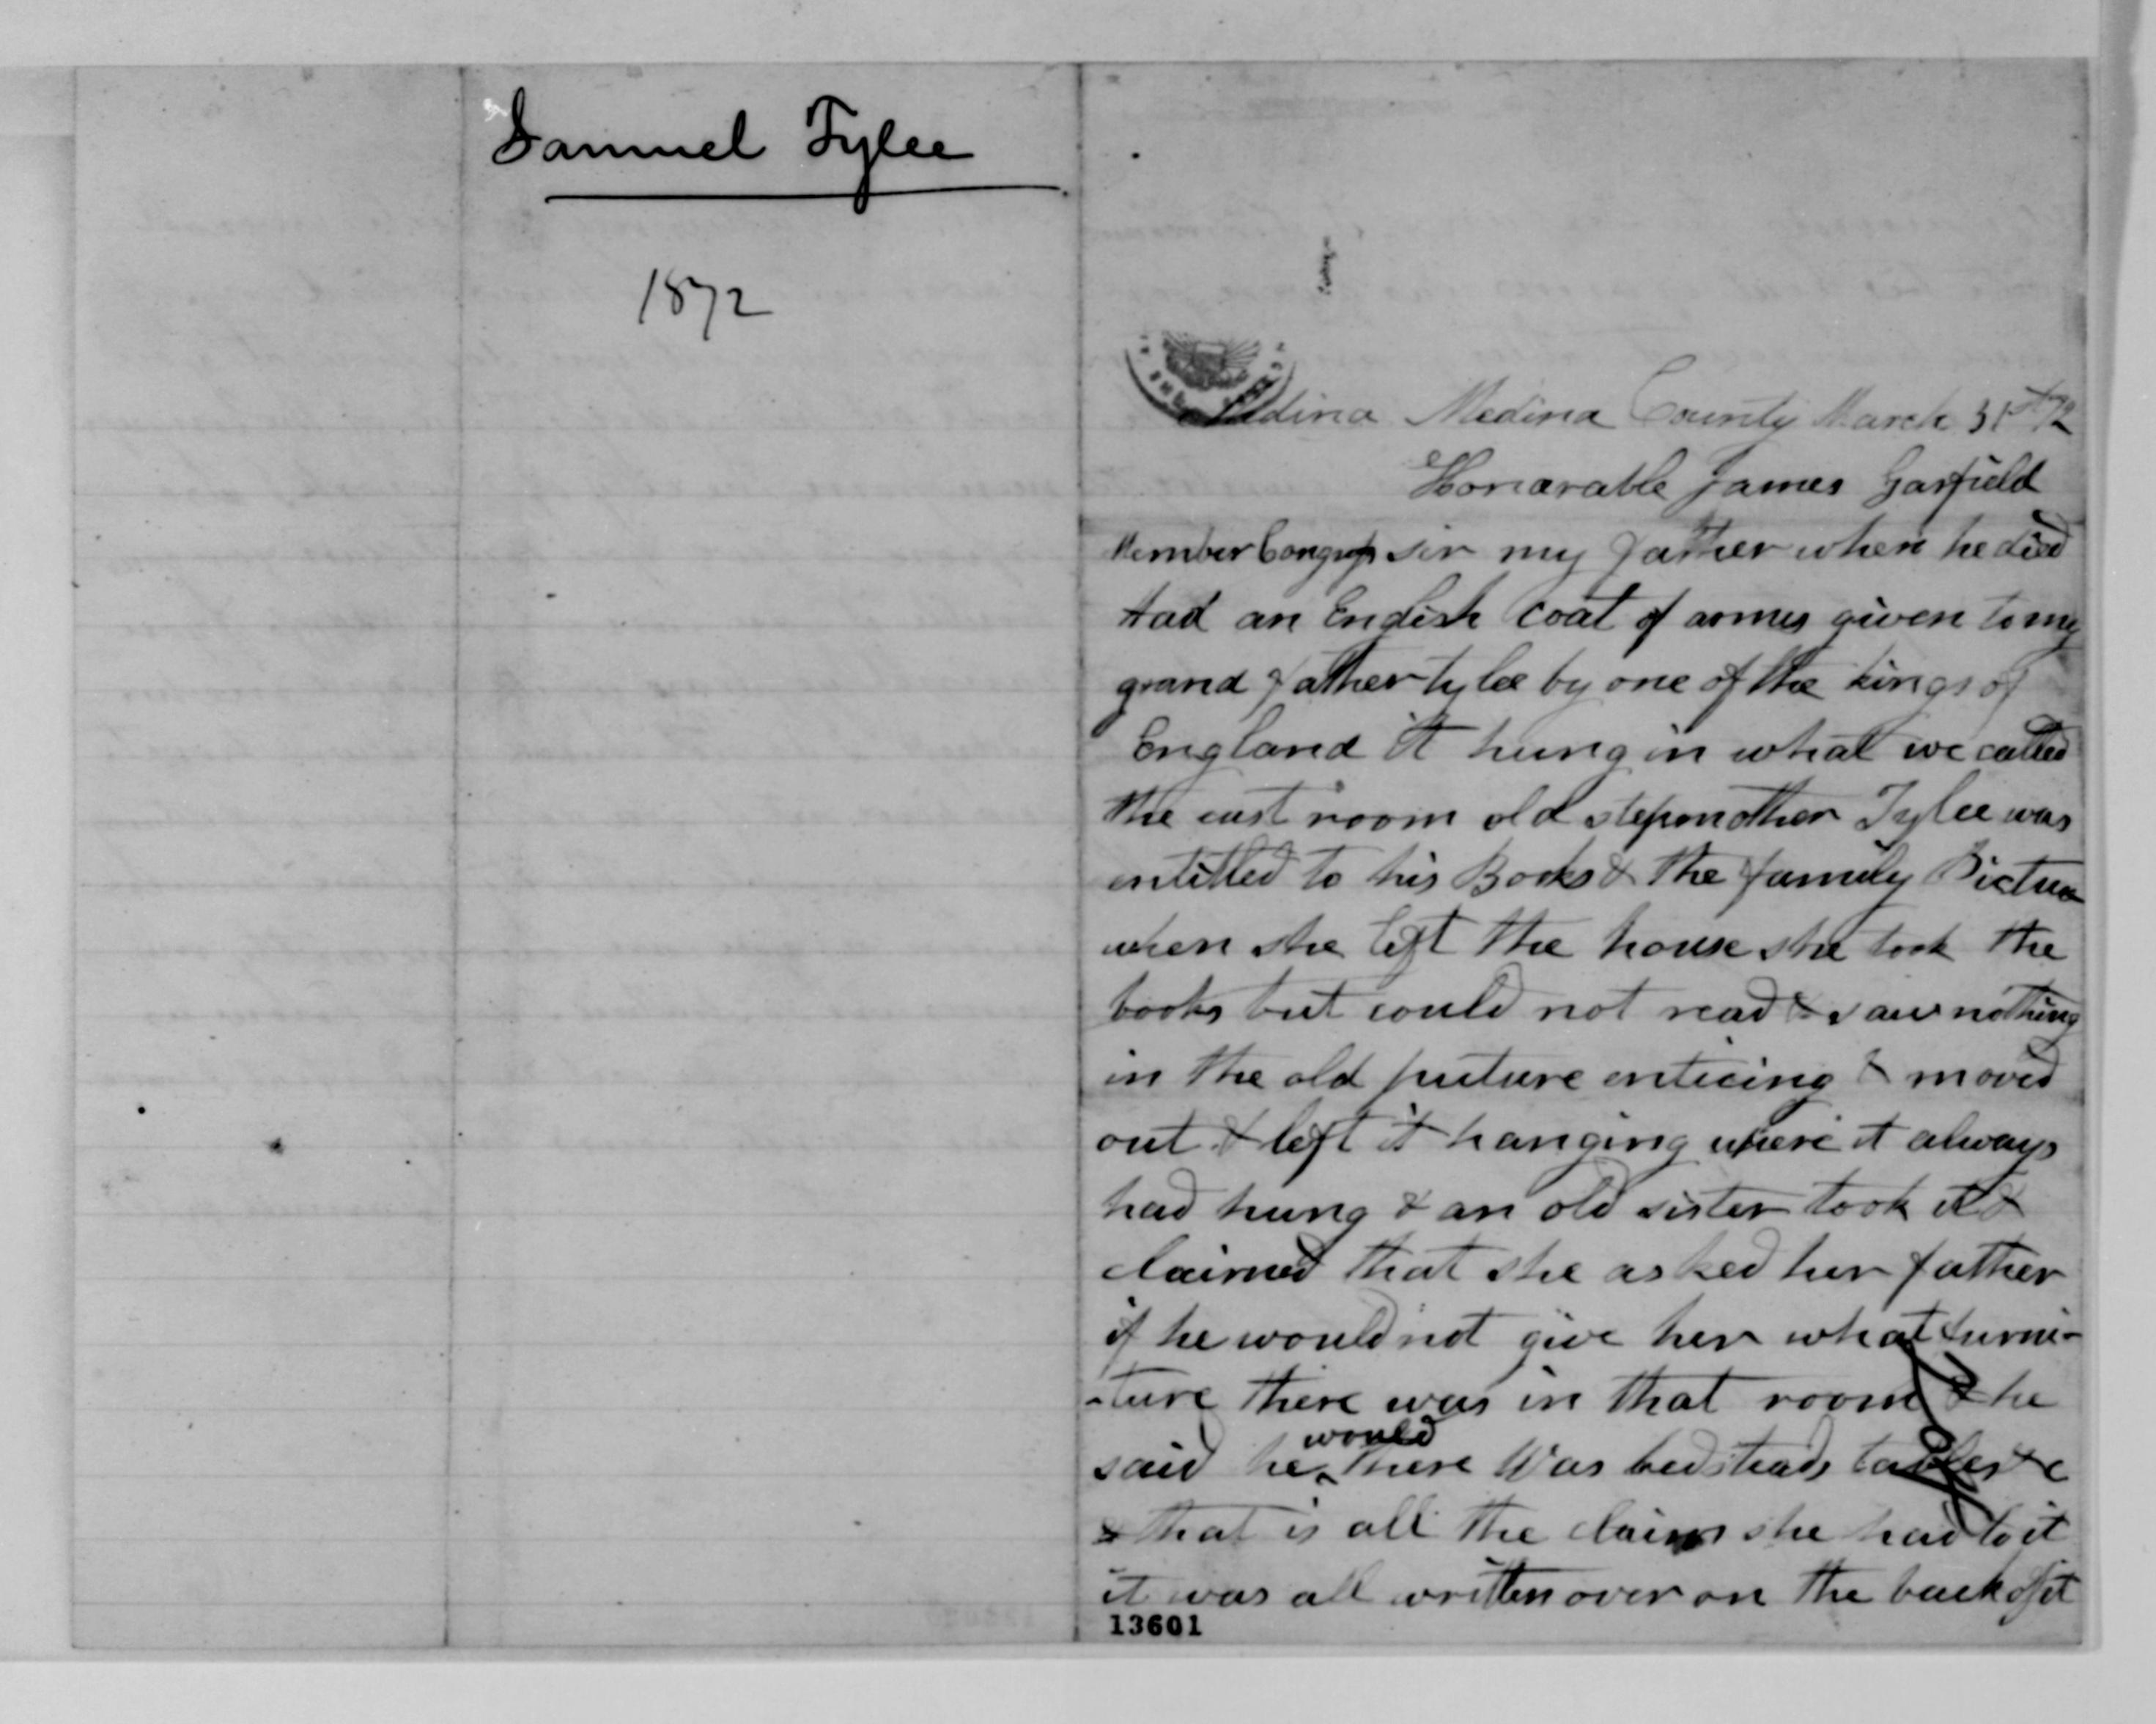 Samuel Tylee
1872
Medina Medina County March 31st 72
Honarable James Garfield
Member Congress sir my father when he died
had an English coat of armes given to my
grand father tylee by one of the kings of
England it hung in what we called
the east room old stepmother Tylee was
entitled to his Books & the family Picture
when she left the house she took the
books but could not read & saw nothing
in the old picture enticing & moved
out & left it hanging where it always
had hung & an old sister took it &
claimed that she asked her father
if he would not give her what furni-
-ture there was in that room & he
said he would there was bedsteads tables &c
& that is all the claim she had to it
it was all written over on the back of it
13601